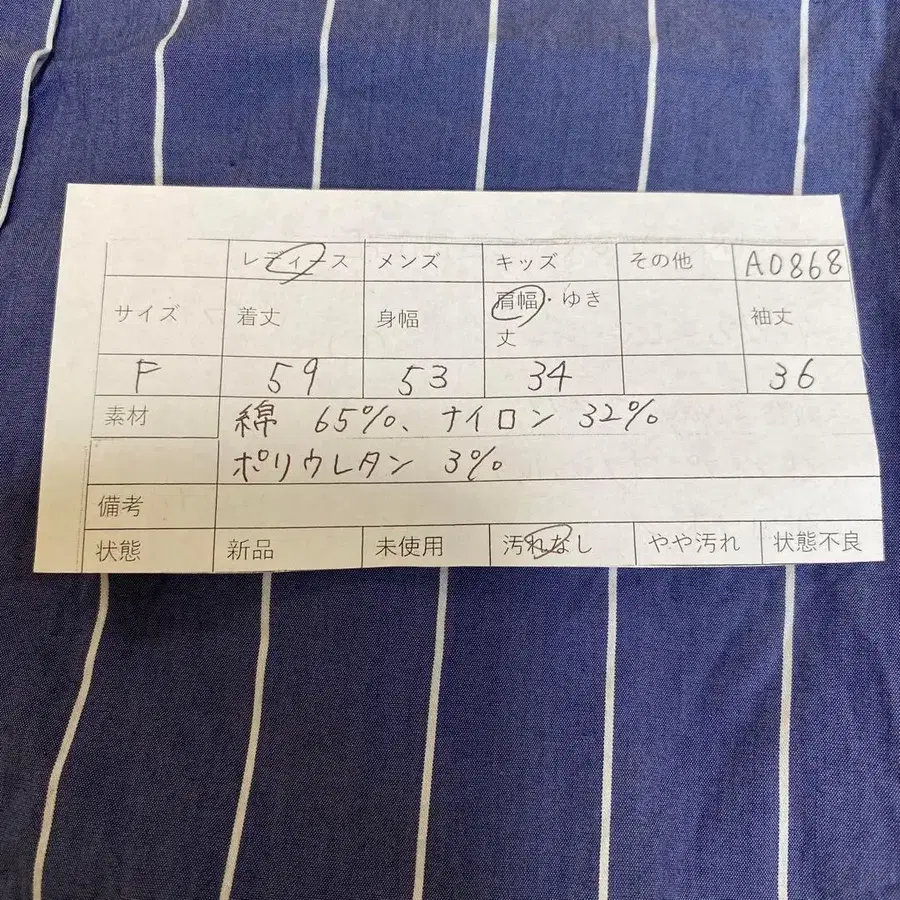 レディース メンズ キッズ その他 A0868
サイズ 着丈 身幅 肩幅・ゆき丈 袖丈
F 59 53 34 36
素材 綿 65%、ナイロン 32%
ポリウレタン 3%
備考
状態 新品 未使用 汚れなし やや汚れ 状態不良